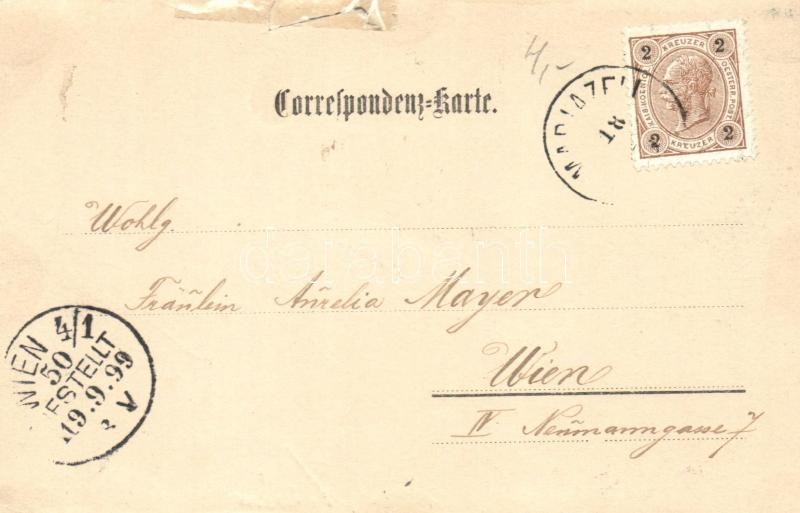 4,-
2 KREUZER 2
KAIS. KOENIGL. OESTERR. POST.
2 KREUZER 2
MARIAZELL
18
Correspondenz=Karte.
Wohlg.
darabanth
Fräulein Aurelia Mayer
Wien
IV Neumanngasse 7
WIEN 4/1
50
BESTELLT
19.9.99